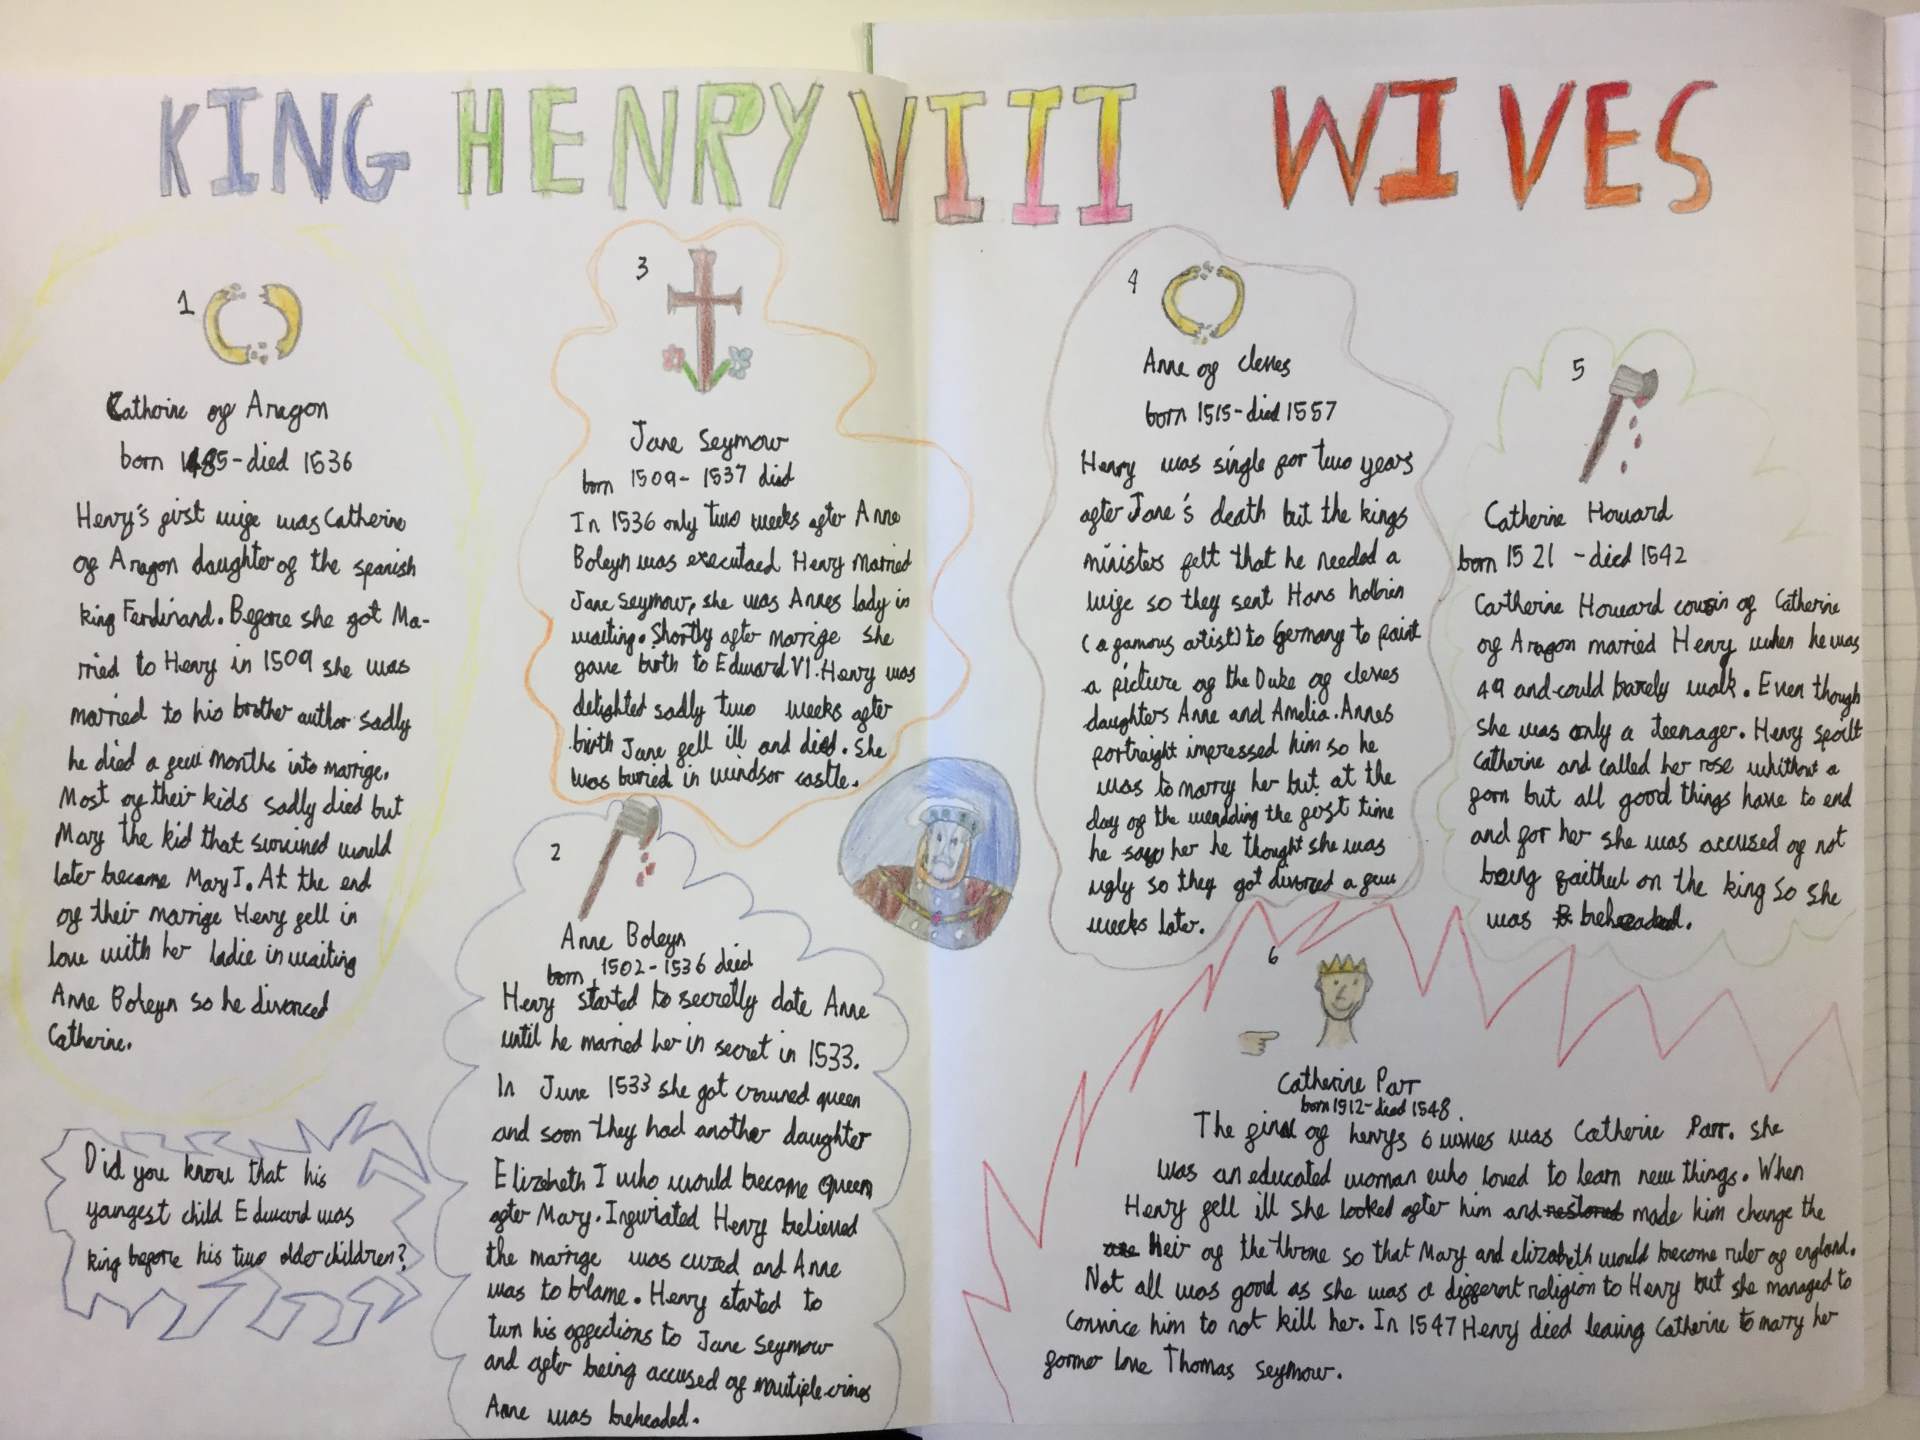 KING HENRY VIII WIVES
1
Catherine of Aragon
born 1485-died 1536
Henry's first wife was Catherine
of Aragon daughter of the spanish
king Ferdinand. Before she got Ma-
rried to Henry in 1509 she was
married to his brother author sadly
he died a few months into marrige.
Most of their kids sadly died but
Mary the kid that survived would
later become Mary I. At the end
of their marrige Henry fell in
love with her ladie in waiting
Anne Boleyn so he divorced
Catherine.
Did you know that his
youngest child Edward was
king before his two older children?
2
Anne Boleyn
born 1502-1536 died
Henry started to secretly date Anne
until he married her in secret in 1533.
In June 1533 she got crowned queen
and soon they had another daughter
Elizabeth I who would become queen
after Mary. Infuriated Henry believed
the marrige was cursed and Anne
was to blame. Henry started to
turn his affections to Jane Seymour
and after being accused of multiple crimes
Anne was beheaded.
3
Jane Seymour
born 1509- 1537 died
In 1536 only two weeks after Anne
Boleyn was executaed Henry married
Jane Seymour, she was Annes lady in
waiting. Shortly after marrige she
gave birth to Edward VI. Henry was
delighted sadly two weeks after
birth Jane fell ill and died. She
was buried in windsor castle.
4
Anne of cleves
born 1515-died 1557
Henry was single for two years
after Jane's death but the kings
ministers felt that he needed a
wife so they sent Hans holbien
(a famous artist) to Germany to paint
a picture of the Duke of cleves
daughters Anne and Amelia. Annes
portraight impressed him so he
was to marry her but at the
day of the weadding the first time
he saw her he thought she was
ugly so they got divorced a few
weeks later.
5
Catherine Howard
born 1521 -died 1542
Catherine Howard cousin of Catherine
of Aragon married Henry when he was
49 and could barely walk. Even though
she was only a teenager. Henry spoilt
Catherine and called her rose whithout a
forn but all good things have to end
and for her she was accused of not
being faithul on the king so she
was beheaded.
6
Catherine Parr
born 1512-died 1548.
The final of henrys 6 wives was Catherine Parr. she
was an educated woman who loved to learn new things. When
Henry fell ill she looked after him and restored made him change the
heir of the throne so that Mary and elizabeth would become ruler of england.
Not all was good as she was a different religion to Henry but she managed to
convince him to not kill her. In 1547 Henry died leaving Catherine to marry her
former love Thomas Seymour.